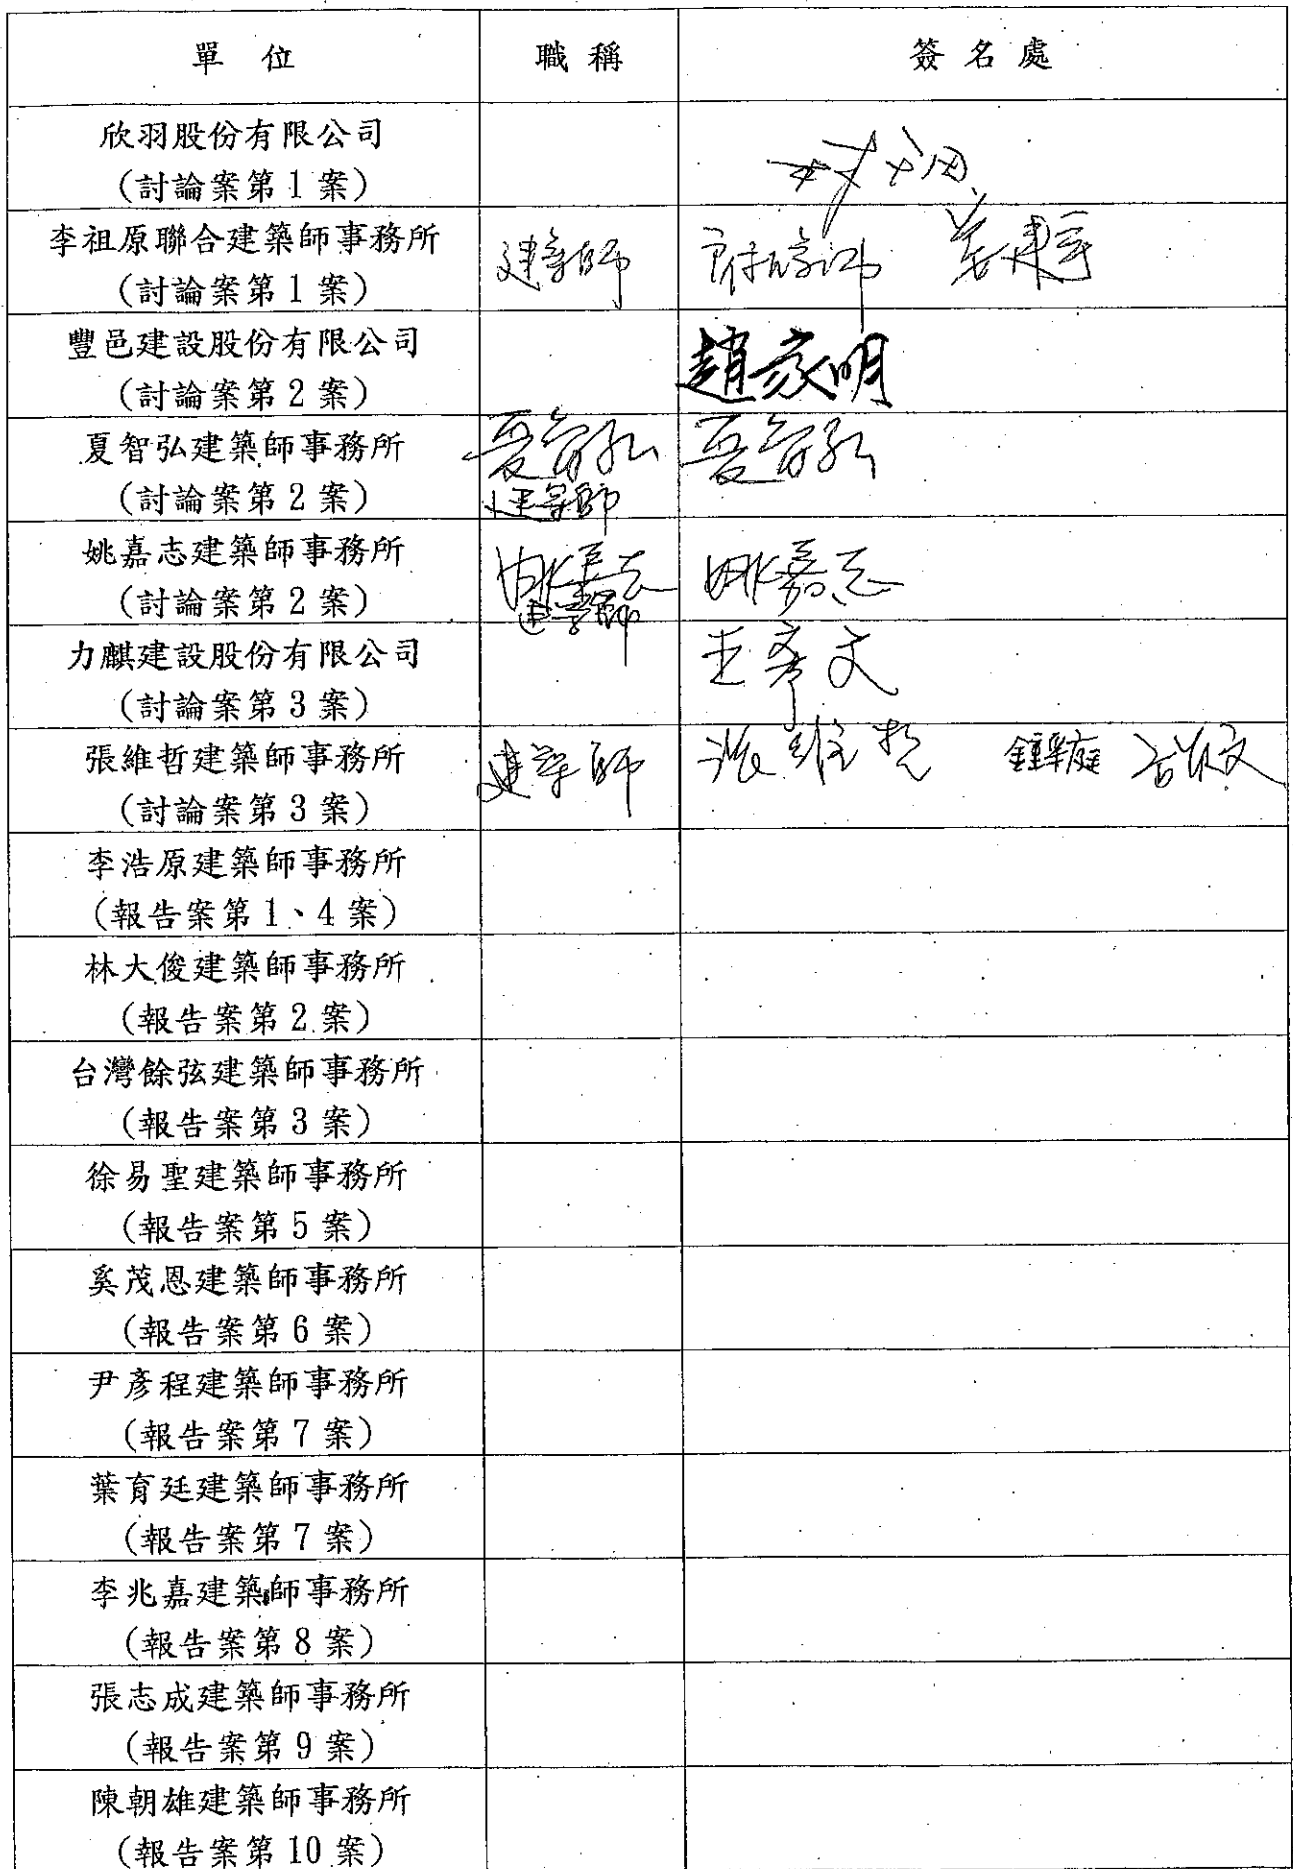 單位 職稱 簽名處
欣羽股份有限公司
(討論案第1案)
李祖原聯合建築師事務所 建築師
(討論案第1案)
豐邑建設股份有限公司 趙家明
(討論案第2案)
夏智弘建築師事務所 夏智弘 夏智弘
(討論案第2案) 建築師
姚嘉志建築師事務所 姚嘉志 姚嘉志
(討論案第2案) 建築師
力麒建設股份有限公司
(討論案第3案)
張維哲建築師事務所 建築師 張維哲
(討論案第3案)
李浩原建築師事務所
(報告案第1、4案)
林大俊建築師事務所
(報告案第2案)
台灣餘弦建築師事務所
(報告案第3案)
徐易聖建築師事務所
(報告案第5案)
奚茂恩建築師事務所
(報告案第6案)
尹彥程建築師事務所
(報告案第7案)
葉育廷建築師事務所
(報告案第7案)
李兆嘉建築師事務所
(報告案第8案)
張志成建築師事務所
(報告案第9案)
陳朝雄建築師事務所
(報告案第10案)